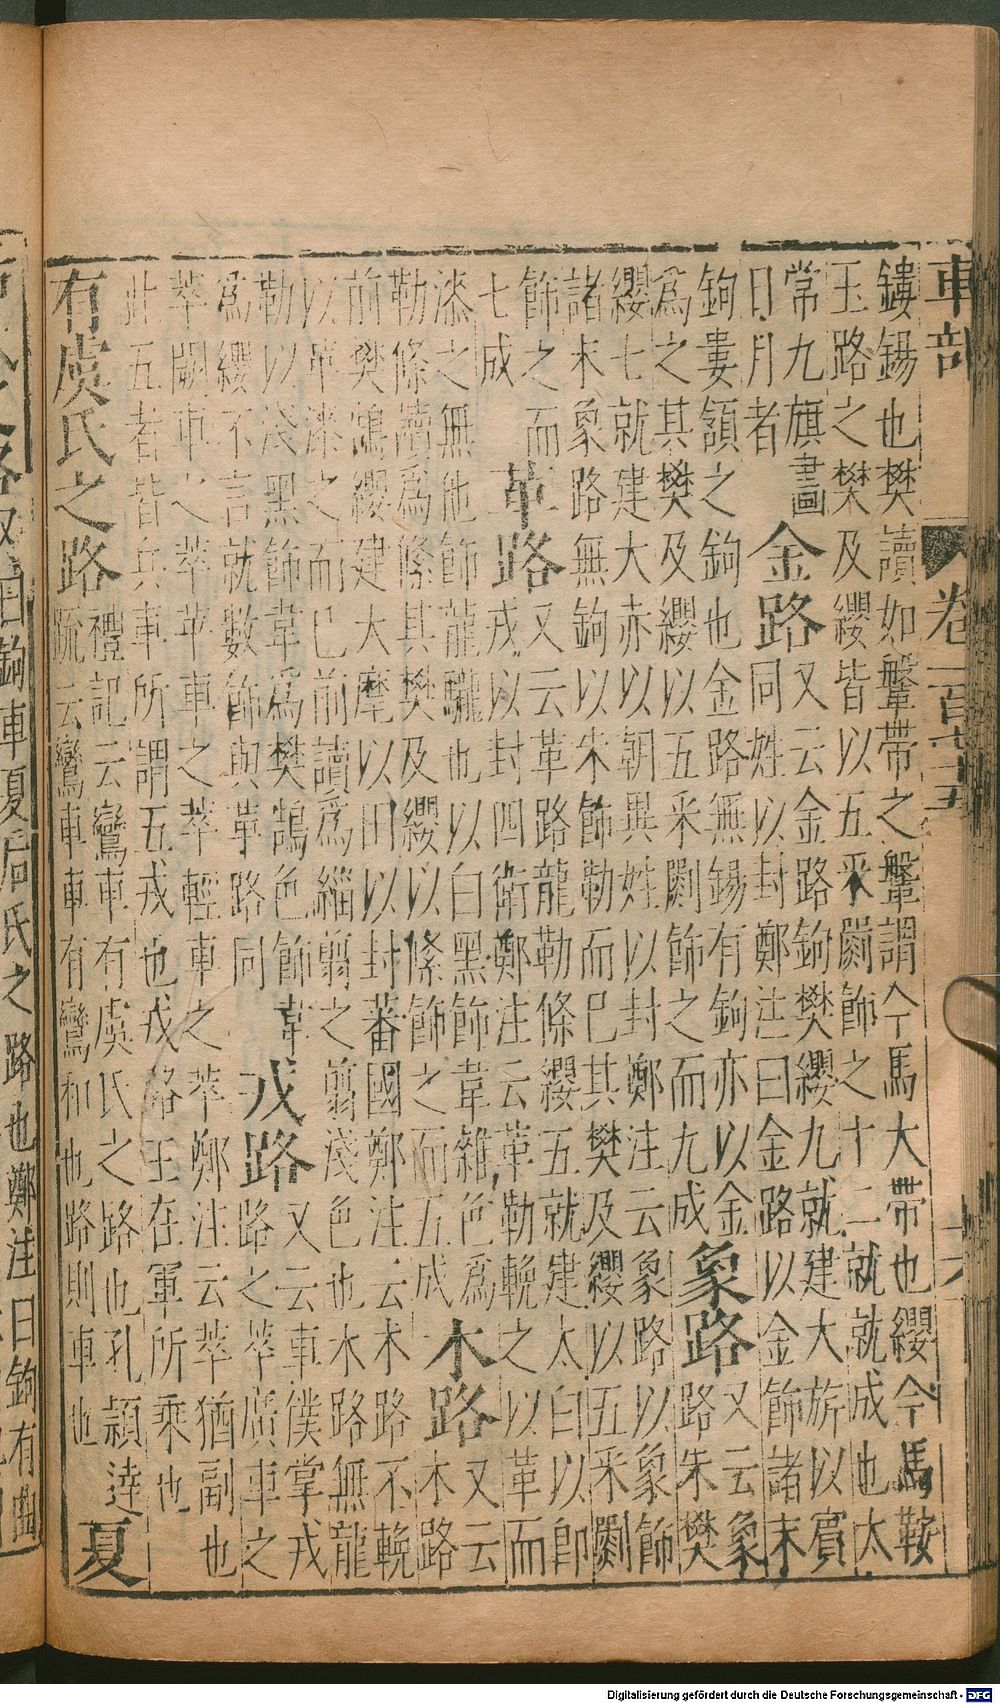 車部 卷一百
鏤錫也樊讀如鞶帶之鞶謂今馬大帶也纓今馬鞍
玉路之樊及纓皆以五采罽飾之十二就就成也太
常九旗畫
日月者
金路
又云金路鉤樊纓九就建大旂以賓
同姓以封鄭注曰金路以金飾諸末
鉤婁頷之鉤也金路無錫有鉤亦以金
為之其樊及纓以五采罽飾之而九成
象路
又云象
路朱樊
纓七就建大赤以朝異姓以封鄭注云象路以象飾
諸末象路無鉤以朱飾勒而已其樊及纓以五采罽
飾之而
七成
革路
又云革路龍勒條纓五就建太白以即
戎以封四衛鄭注云革勒輓之以革而
漆之無他飾龍駹也以白黑飾韋雜色為
勒條讀為絛其樊及纓以絛飾之而五成
木路
又云
木路
前樊鵠纓建大麾以田以封蕃國鄭注云木路不輓
以革漆之而已前讀為緇翦之翦淺色也木路無龍
勒以淺黑飾韋為樊鵠色飾韋
為纓不言就數飾與革路同
戎路
又云車僕掌戎
路之萃廣車之
萃闕車之萃苹車之萃輕車之萃鄭注云萃猶副也
此五者皆兵車所謂五戎也戎路王在軍所乘也
有虞氏之路
禮記云鸞車有虞氏之路也孔頴逹
疏云鸞車車有鸞和也路則車也
夏
曰鉤車夏后氏之路也鄭注曰鉤有曲
Digitalisierung gefördert durch die Deutsche Forschungsgemeinschaft - DFG